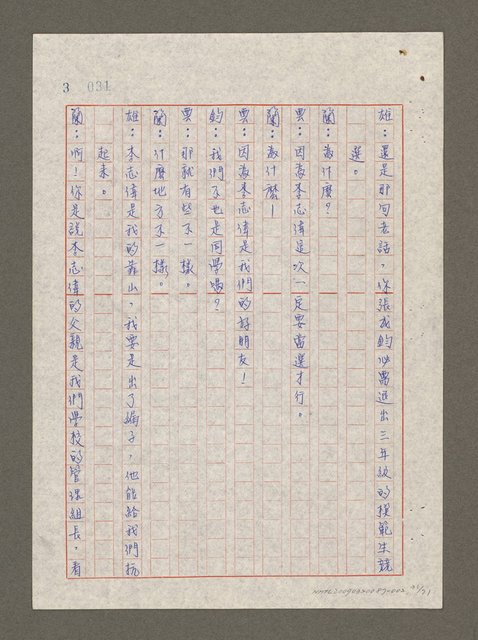 3 031
雄：還是那句老話，你張成鈞必需退出三年級的模範生競
選。
蘭：為什麼？
雲：因為李志偉是次一定要當選才行。
蘭：為什麼！
雲：因為李志偉是我們的好朋友！
鈞：我們不也是同學嗎？
雲：那就有些不一樣。
蘭：什麼地方不一樣。
雄：李志偉是我的靠山，我要是出了漏子，他能給我們抗
起來。
蘭：啊！你是說李志偉的父親是我們學校的管理組長，看
NMTL20090320087-002
31/71